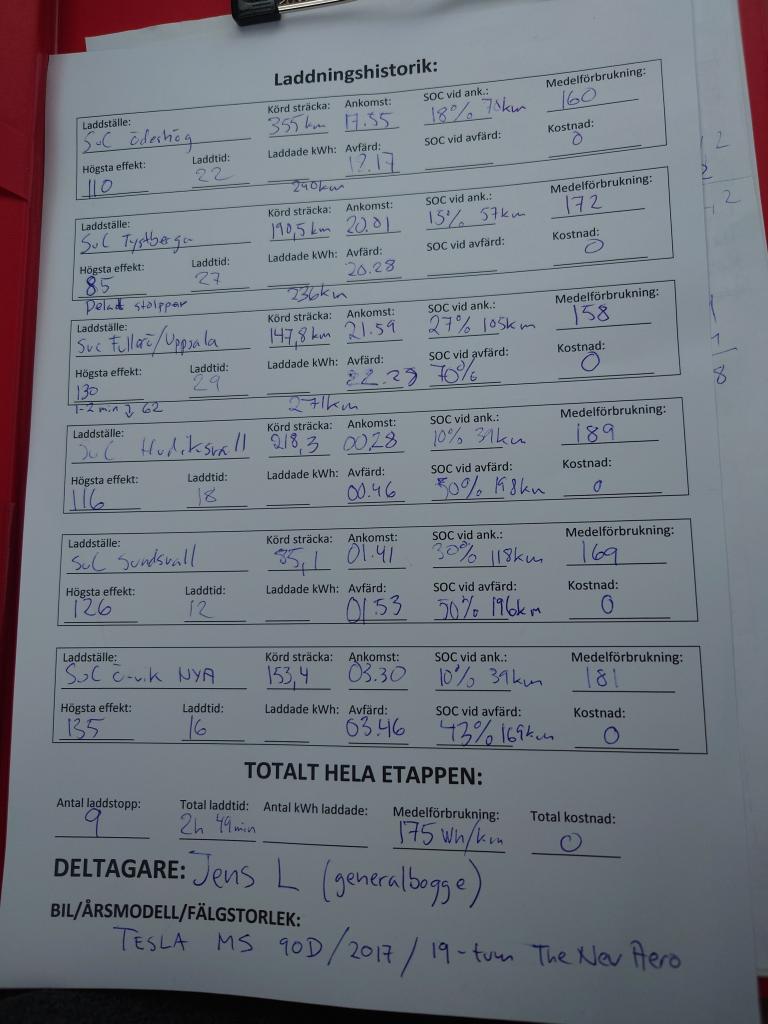 Laddningshistorik:
Laddställe: Körd sträcka: Ankomst: SOC vid ank.: Medelförbrukning:
SuC Ödeshög 355km 17.55 18% 70km 160
Högsta effekt: Laddtid: Laddade kWh: Avfärd: SOC vid avfärd: Kostnad:
110 22 240km 0
Laddställe: Körd sträcka: Ankomst: SOC vid ank.: Medelförbrukning:
SuC Tystberga 190,5km 20.01 15% 57km 172
Högsta effekt: Laddtid: Laddade kWh: Avfärd: SOC vid avfärd: Kostnad:
85 27 20.28 0
Delad stolpar 236km
Laddställe: Körd sträcka: Ankomst: SOC vid ank.: Medelförbrukning:
SuC Fullerö/Uppsala 147,8km 21.59 27% 105km 158
Högsta effekt: Laddtid: Laddade kWh: Avfärd: SOC vid avfärd: Kostnad:
130 29 22.28 70% 0
1-2 min ↓ 62 271km
Laddställe: Körd sträcka: Ankomst: SOC vid ank.: Medelförbrukning:
SuC Hudiksvall 218,3 00.28 10% 39km 189
Högsta effekt: Laddtid: Laddade kWh: Avfärd: SOC vid avfärd: Kostnad:
116 18 00.46 50% 198km 0
Laddställe: Körd sträcka: Ankomst: SOC vid ank.: Medelförbrukning:
SuC Sundsvall 85,1 01.41 30% 118km 169
Högsta effekt: Laddtid: Laddade kWh: Avfärd: SOC vid avfärd: Kostnad:
126 12 01.53 50% 196km 0
Laddställe: Körd sträcka: Ankomst: SOC vid ank.: Medelförbrukning:
SuC Ö-vik NYA 153,4 03.30 10% 39km 181
Högsta effekt: Laddtid: Laddade kWh: Avfärd: SOC vid avfärd: Kostnad:
135 16 03.46 43% 169km 0
TOTALT HELA ETAPPEN:
Antal laddstopp: Total laddtid: Antal kWh laddade: Medelförbrukning: Total kostnad:
9 2h 49min 175 Wh/km 0
DELTAGARE: Jens L (generalbogge)
BIL/ÅRSMODELL/FÄLGSTORLEK:
TESLA MS 90D/2017/19-tum The New Aero